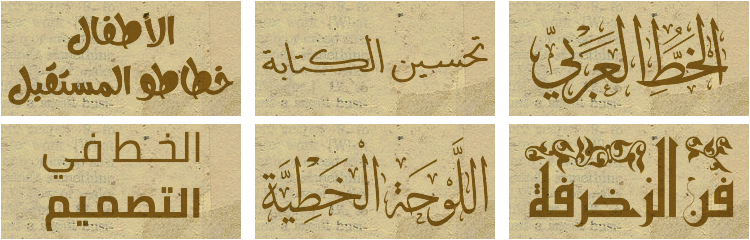 الخَطُّ العَرَبِي
تحسين الكتابة
الأطفال
خطاطو المستقبل
فُن الزخرفة
اللَّوْحَة الْخَطِيَّة
الخط في
التصميم